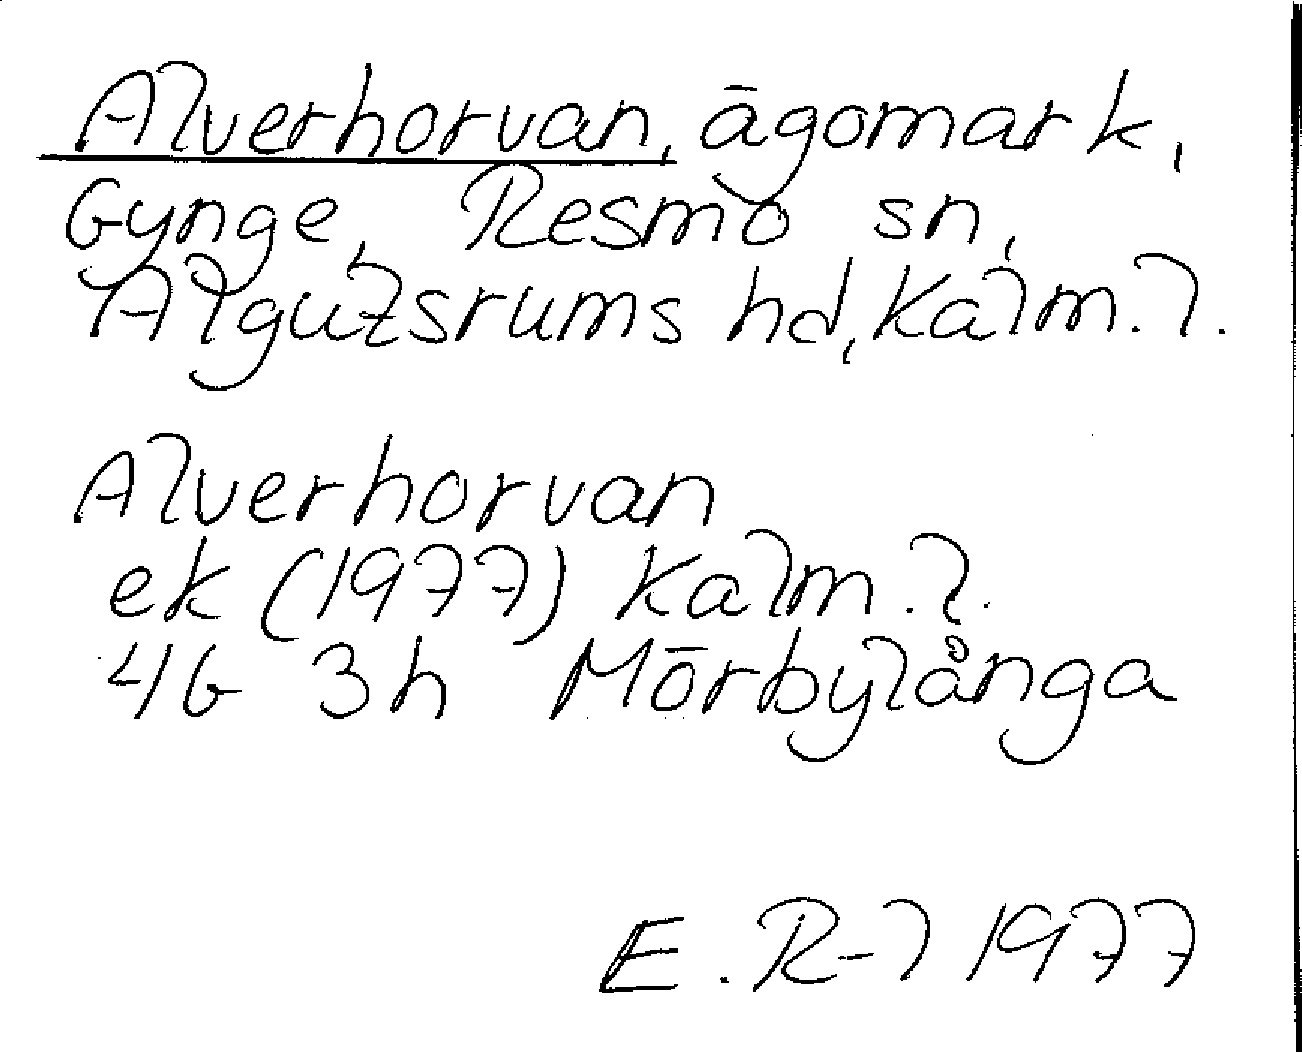 Alverhorvan, ägomark,
Gynge, Resmo sn,
Algutsrums hd, Kalm. l.
Alverhorvan
ek (1977) Kalm. l.
4G 3h Mörbylånga
E. R-l 1977